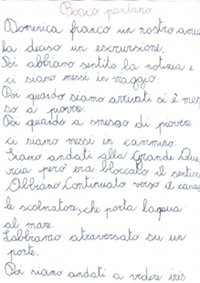 Bosco pantano
Domenica franco un nostro amic
ha deciso un escursione.
Poi abbiamo sentito la notizia e
ci siamo messi in viaggio.
Poi quando siamo arrivati si è mes
so a piovere.
Poi quando a smesso di piovere
ci siamo messi in cammino.
Siamo andati alla Grande Que
rcia però era bloccato il sentier
Abbiamo Continuato verso il cana
le scolmatore, che porta laqua
al mare.
Labbiamo atraversato su un
ponte.
Poi siamo andati a vedere iris